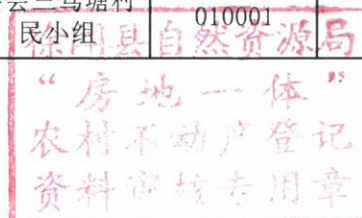 塘村
民小组 010001
徐闻县自然资源局
“房地一体”
农村不动产登记
资料审核专用章